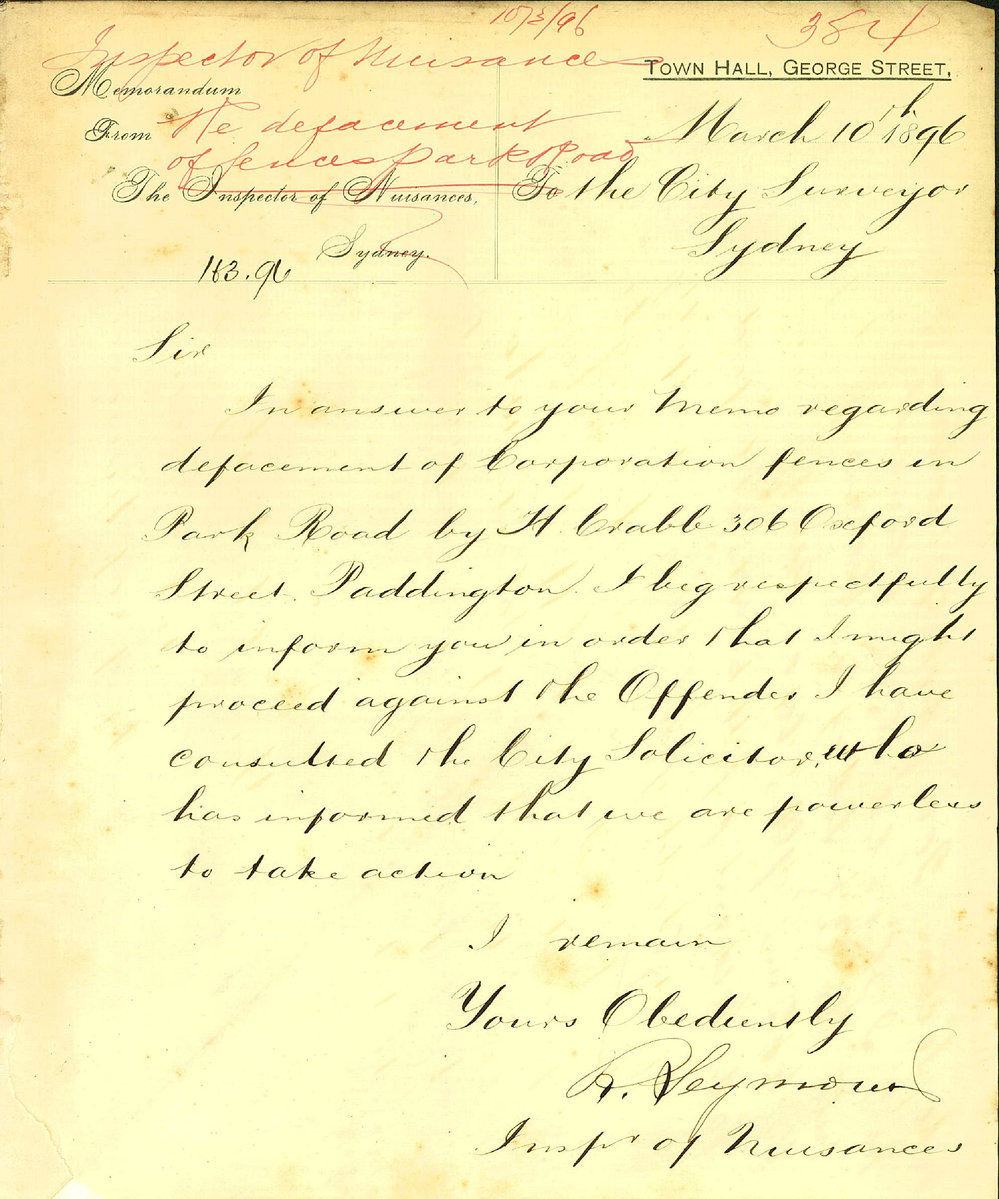 10/3/96
384
Inspector of Nuisances
TOWN HALL, GEORGE STREET,
Memorandum
From
Re defacement
of fences Park Road
March 10th 1896
The Inspector of Nuisances,
To the City Surveyor
Sydney.
Sydney
183.96
Sir
In answer to your Memo regarding
defacement of Corporation fences in
Park Road by H. Crabb 306 Oxford
Street. Paddington. I beg respectfully
to inform you in order that I might
proceed against the Offender I have
consulted the City Solicitor, who
has informed that we are powerless
to take action
I remain
Yours Obediently
R. Seymour
Inspr of Nuisances